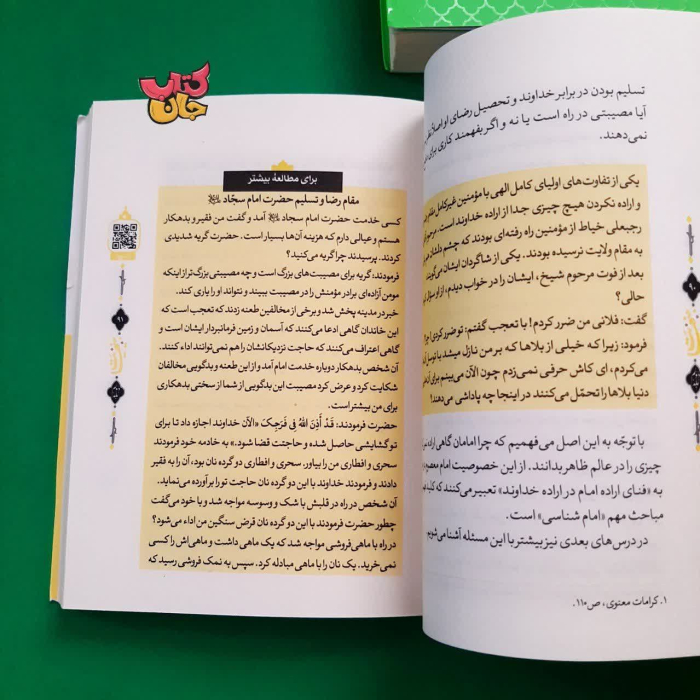 کتاب
جان
تسلیم بودن در برابر خداوند و تحصیل رضای او اصلاً
آیا مصیبتی در راه است یا نه و اگر بفهمند کاری برای
نمی‌دهند.
یکی از تفاوت‌های اولیای کامل الهی با مؤمنین غیرکامل
و اراده نکردن هیچ چیزی جدا از اراده خداوند است. مرحوم
رجبعلی خیاط از مؤمنین راه رفته‌ای بودند که چشم دلشان
به مقام ولایت نرسیده بودند. یکی از شاگردان ایشان می‌گوید
بعد از فوت مرحوم شیخ، ایشان را در خواب دیدم، از او
حالی؟
گفت: فلانی من ضرر کردم! با تعجب گفتم: تو ضرر کردی!
فرمود: زیرا که خیلی از بلاها که بر من نازل میشد با توسل
می‌کردم، ای کاش حرفی نمی‌زدم چون الآن می‌بینم برای
دنیا بلاها را تحمّل می‌کنند در اینجا چه پاداشی می‌دهند!
با توجّه به این اصل می‌فهمیم که چرا امامان گاهی اراده
چیزی را در عالم ظاهر بدانند. از این خصوصیت امام معصوم
به «فنای اراده امام در اراده خداوند» تعبیر می‌کنند که
مباحث مهم «امام شناسی» است.
در درس‌های بعدی نیز بیشتر با این مسئله آشنا می‌شویم
۱. کرامات معنوی، ص۱۱۰.
۹۰
برای مطالعهٔ بیشتر
مقام رضا و تسلیم حضرت امام سجّاد
کسی خدمت حضرت امام سجاد آمد و گفت من فقیر و بدهکار
هستم و عیالی دارم که هزینه آن‌ها بسیار است. حضرت گریه شدیدی
کردند. پرسیدند چرا گریه می‌کنید؟
فرمودند: گریه برای مصیبت‌های بزرگ است و چه مصیبتی بزرگ‌تر از اینکه
مومن آزاده‌ای برادر مؤمنش را در مصیبت ببیند و نتواند او را یاری کند.
خبر در مدینه پخش شد و برخی از مخالفین طعنه زدند که تعجب است که
این خاندان گاهی ادعا می‌کنند که آسمان و زمین فرمانبردار ایشان است و
گاهی اعتراف می‌کنند که حاجت نزدیکانشان را هم نمی‌توانند اداء کنند.
آن شخص بدهکار دوباره خدمت امام آمد و از این طعنه و بدگویی مخالفان
شکایت کرد و عرض کرد مصیبت این بدگویی از شما از سختی بدهکاری
برای من بیشتر است.
حضرت فرمودند: قَدْ أَذِنَ اللهُ فِی فَرَجِکَ «الآن خداوند اجازه داد تا برای
تو گشایشی حاصل شده و حاجتت قضا شود.» به خادمه خود فرمودند
سحری و افطاری من را بیاور. سحری و افطاری دو گرده نان بود، آن را به فقیر
دادند و فرمودند خداوند با این دو گرده نان حاجت تو را برآورده می‌نماید.
آن شخص در راه در قلبش با شک و وسوسه مواجه شد و با خود می‌گفت
چطور حضرت فرمودند با این دو گرده نان قرض سنگین من اداء می‌شود؟
در راه با ماهی‌فروشی مواجه شد که یک ماهی داشت و ماهی‌اش را کسی
نمی‌خرید. یک نان را با ماهی مبادله کرد. سپس به نمک فروشی رسید که
۹۱